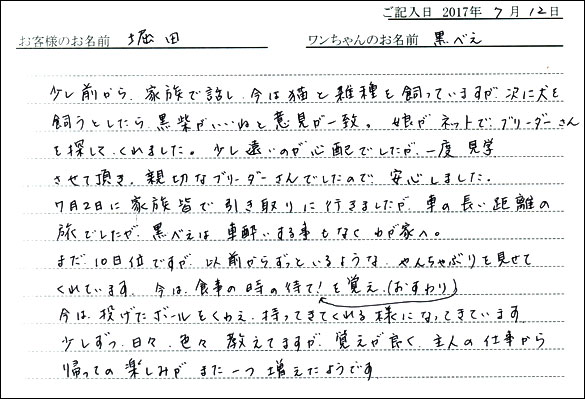 ご記入日 2017年 7 月 12 日
お客様のお名前 堀田 ワンちゃんのお名前 黒べえ
少し前から、家族で話し、今は猫と雑種を飼っていますが、次に犬を
飼うとしたら、黒柴がいいねと意見が一致。娘がネットで、ブリーダーさん
を探してくれました。少し遠いのが心配でしたが、一度見学
させて頂き、親切なブリーダーさんでしたので、安心しました。
7月2日に家族皆で引き取りに行きましたが、車の長い距離の
旅でしたが、黒べえは車酔いする事もなくわが家へ。
まだ、10日位ですが、以前からずっといるような、やんちゃぶりを見せて
くれています。今は、食事の時の待て!を覚え、(おすわり)
今は、投げたボールをくわえ、持ってきてくれる様になってきています
少しずつ、日々、色々教えてますが、覚えが良く、主人の仕事から
帰っての楽しみが、また一つ増えたようです